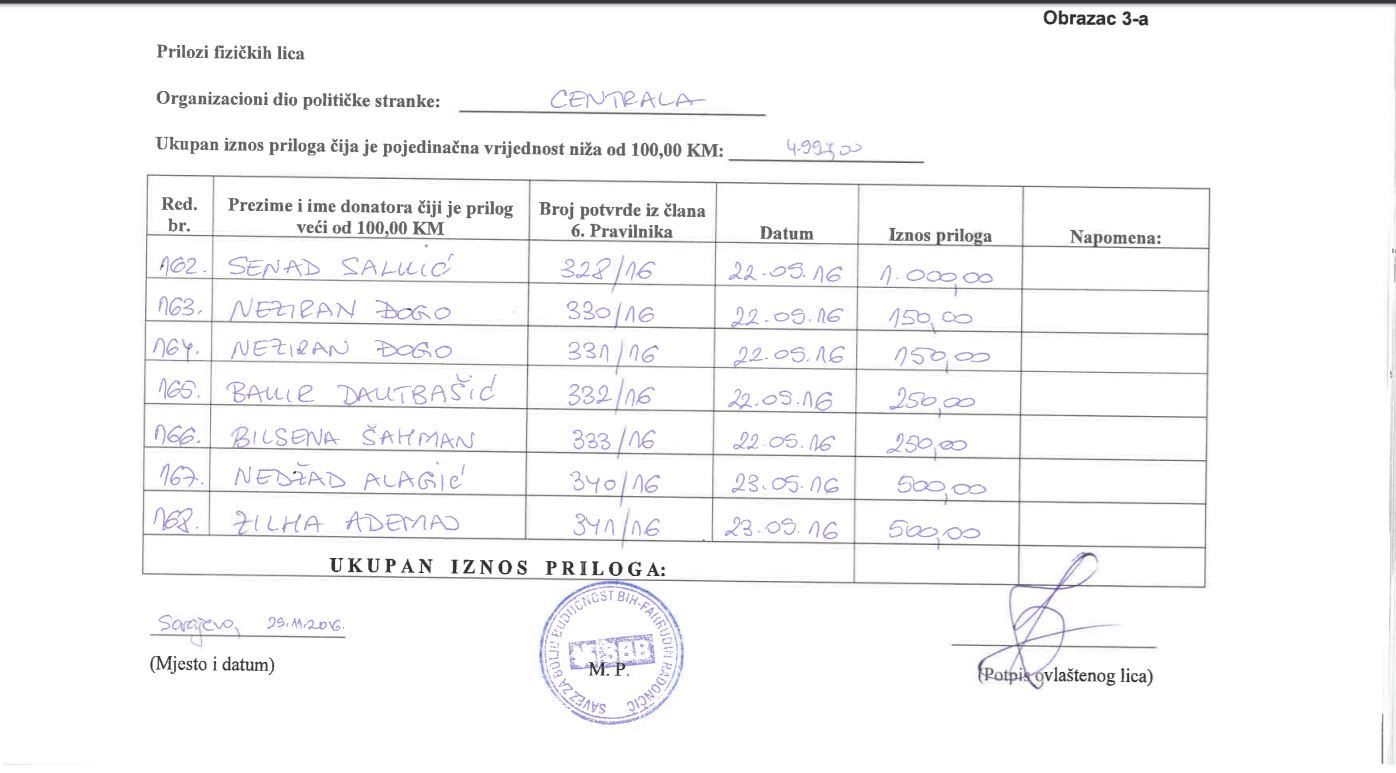 Obrazac 3-a
Prilozi fizičkih lica
Organizacioni dio političke stranke: CENTRALA
Ukupan iznos priloga čija je pojedinačna vrijednost niža od 100,00 KM:
Red. br. Prezime i ime donatora čiji je prilog veći od 100,00 KM Broj potvrde iz člana 6. Pravilnika Datum Iznos priloga Napomena:
162. SENAD 328/16 22.09.16 1.000,00
163. NEZIRAN ĐOGO 330/16 22.09.16 150,00
164. NEZIRAN ĐOGO 331/16 22.09.16 150,00
165. DAUTBAŠIĆ 332/16 22.09.16 250,00
166. BILSENA ŠAHMAN 333/16 22.09.16 250,00
167. NEDŽAD ALAGIĆ 340/16 23.09.16 500,00
168. ZILHA ADEMAJ 341/16 23.09.16 500,00
UKUPAN IZNOS PRILOGA:
Sarajevo, 29.11.2016.
(Mjesto i datum)
SAVEZ ZA BOLJU BUDUĆNOST BIH-FAHRUDIN RADONČIĆ
SBB
M. P.
(Potpis ovlaštenog lica)